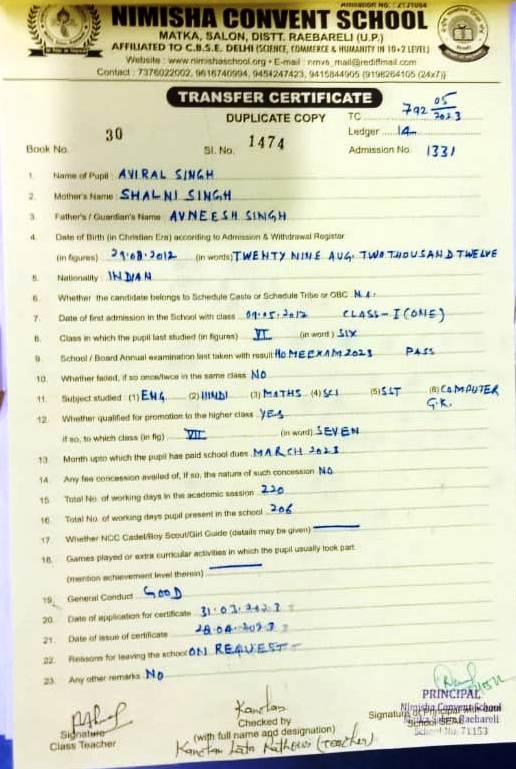 Affiliation No. : 2131084
NIMISHA CONVENT SCHOOL
MATKA, SALON, DISTT. RAEBARELI (U.P.)
AFFILIATED TO C.B.S.E. DELHI (SCIENCE, COMMERCE & HUMANITY IN 10+2 LEVEL)
Website : www.nimishaschool.org • E-mail : nmvs_mail@rediffmail.com
Contact : 7376022002, 9616740994, 9454247423, 9415844905 (9198264105 (24x7))
TRANSFER CERTIFICATE
DUPLICATE COPY
TC 792 05/2023
Ledger 14
Book No. 30 Sl. No. 1474 Admission No. 1331
1. Name of Pupil : AVIRAL SINGH
2. Mother's Name : SHALNI SINGH
3. Father's / Guardian's Name : AVNEESH SINGH
4. Date of Birth (in Christian Era) according to Admission & Withdrawal Register
(in figures) 29.08.2012 (in words) TWENTY NINE AUG. TWO THOUSAND TWELVE
5. Nationality : INDIAN
6. Whether the candidate belongs to Schedule Caste or Schedule Tribe or OBC N.A.
7. Date of first admission in the School with class CLASS-I (ONE)
8. Class in which the pupil last studied (in figures) VI (in word) SIX
9. School / Board Annual examination last taken with result HOME EXAM 2023 PASS
10. Whether failed, if so once/twice in the same class NO
11. Subject studied : (1) ENG. (2) HINDI (3) MATHS (4) SCI (5) SST (6) COMPUTER
G.K.
12. Whether qualified for promotion to the higher class YES
if so, to which class (in fig) VII (in word) SEVEN
13. Month upto which the pupil has paid school dues MARCH 2023
14. Any fee concession availed of, if so, the nature of such concession NO
15. Total No. of working days in the academic session 220
16. Total No. of working days pupil present in the school 206
17. Whether NCC Cadet/Boy Scout/Girl Guide (details may be given)
18. Games played or extra curricular activities in which the pupil usually took part
(mention achievement level therein)
19. General Conduct GOOD
20. Date of application for certificate 31.03.2023
21. Date of issue of certificate 28.04.2023
22. Reasons for leaving the school ON REQUEST
23. Any other remarks NO
PRINCIPAL
Nimisha Convent School
Signature of Principal with
School SEAL
Raebareli
School No. 71153
Signature
Class Teacher
Checked by
(with full name and designation)
(Teacher)